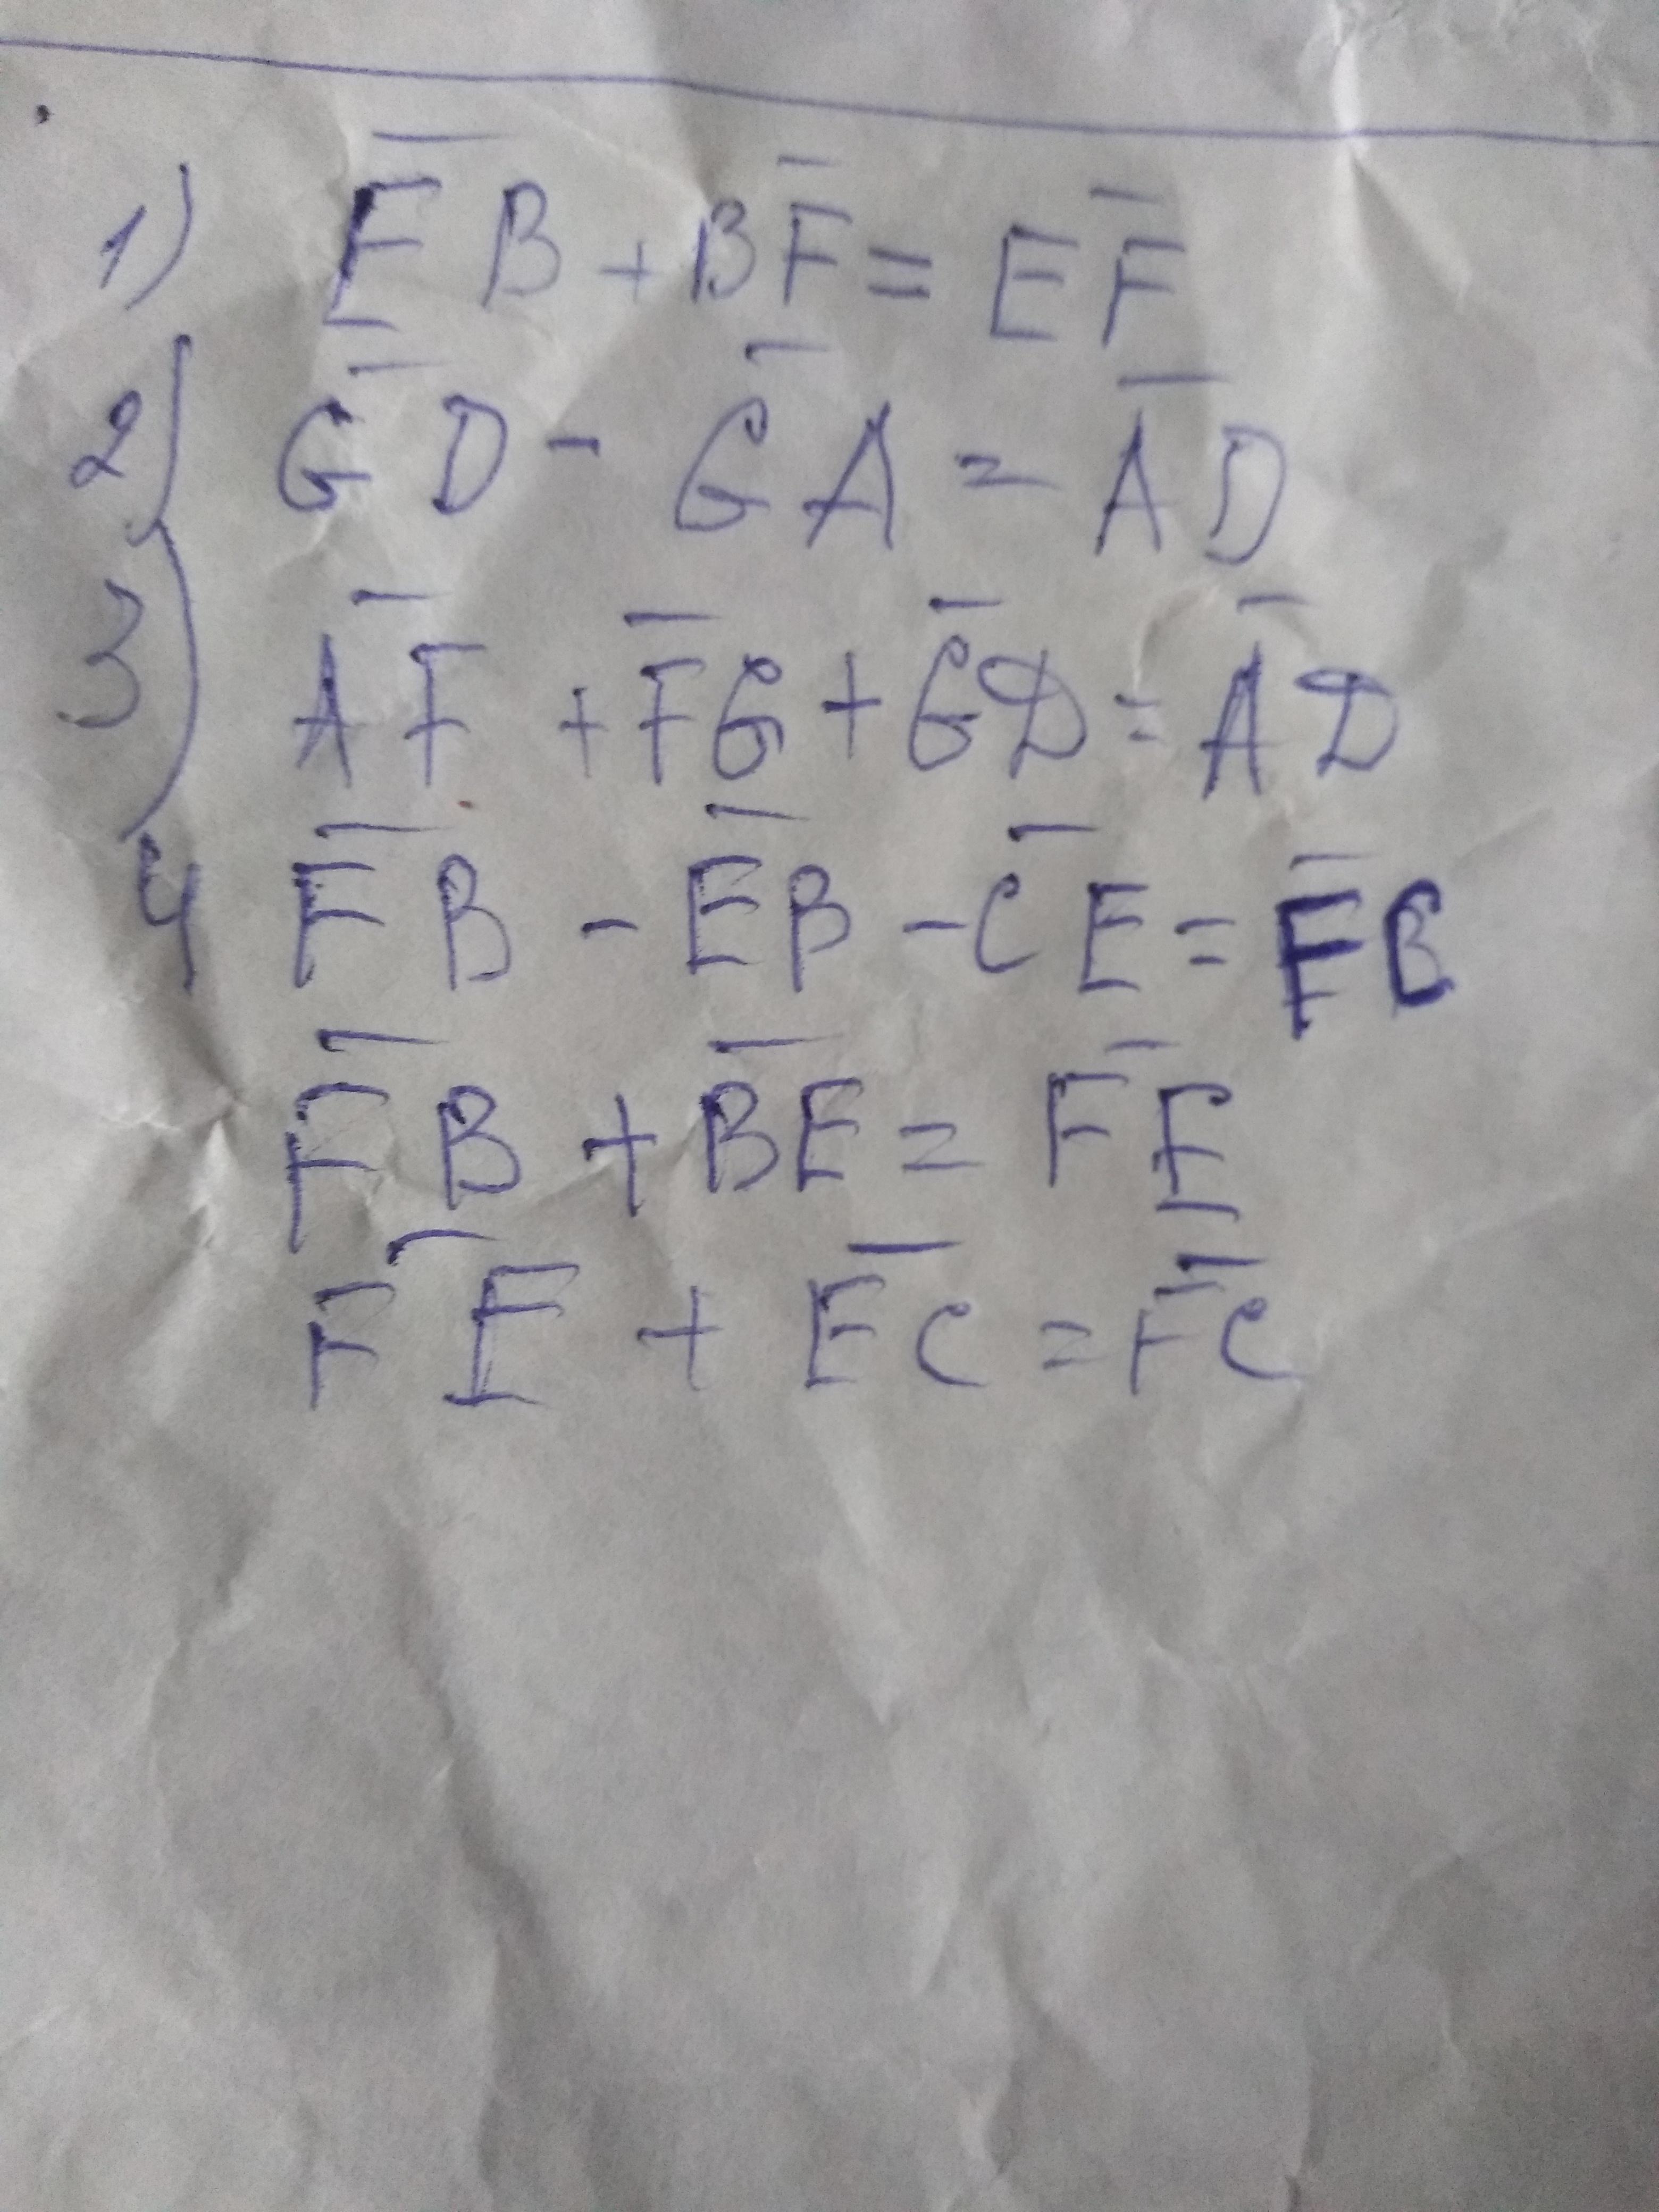 1) E̅B + BF̅ = EF̅
2) G̅D - G̅A = A̅D
3) AF̅ + F̅G + G̅D = A̅D
4 F̅B - E̅B - C̅E = F̅C
F̅B + B̅E = F̅E
FE̅ + E̅C = F̅C